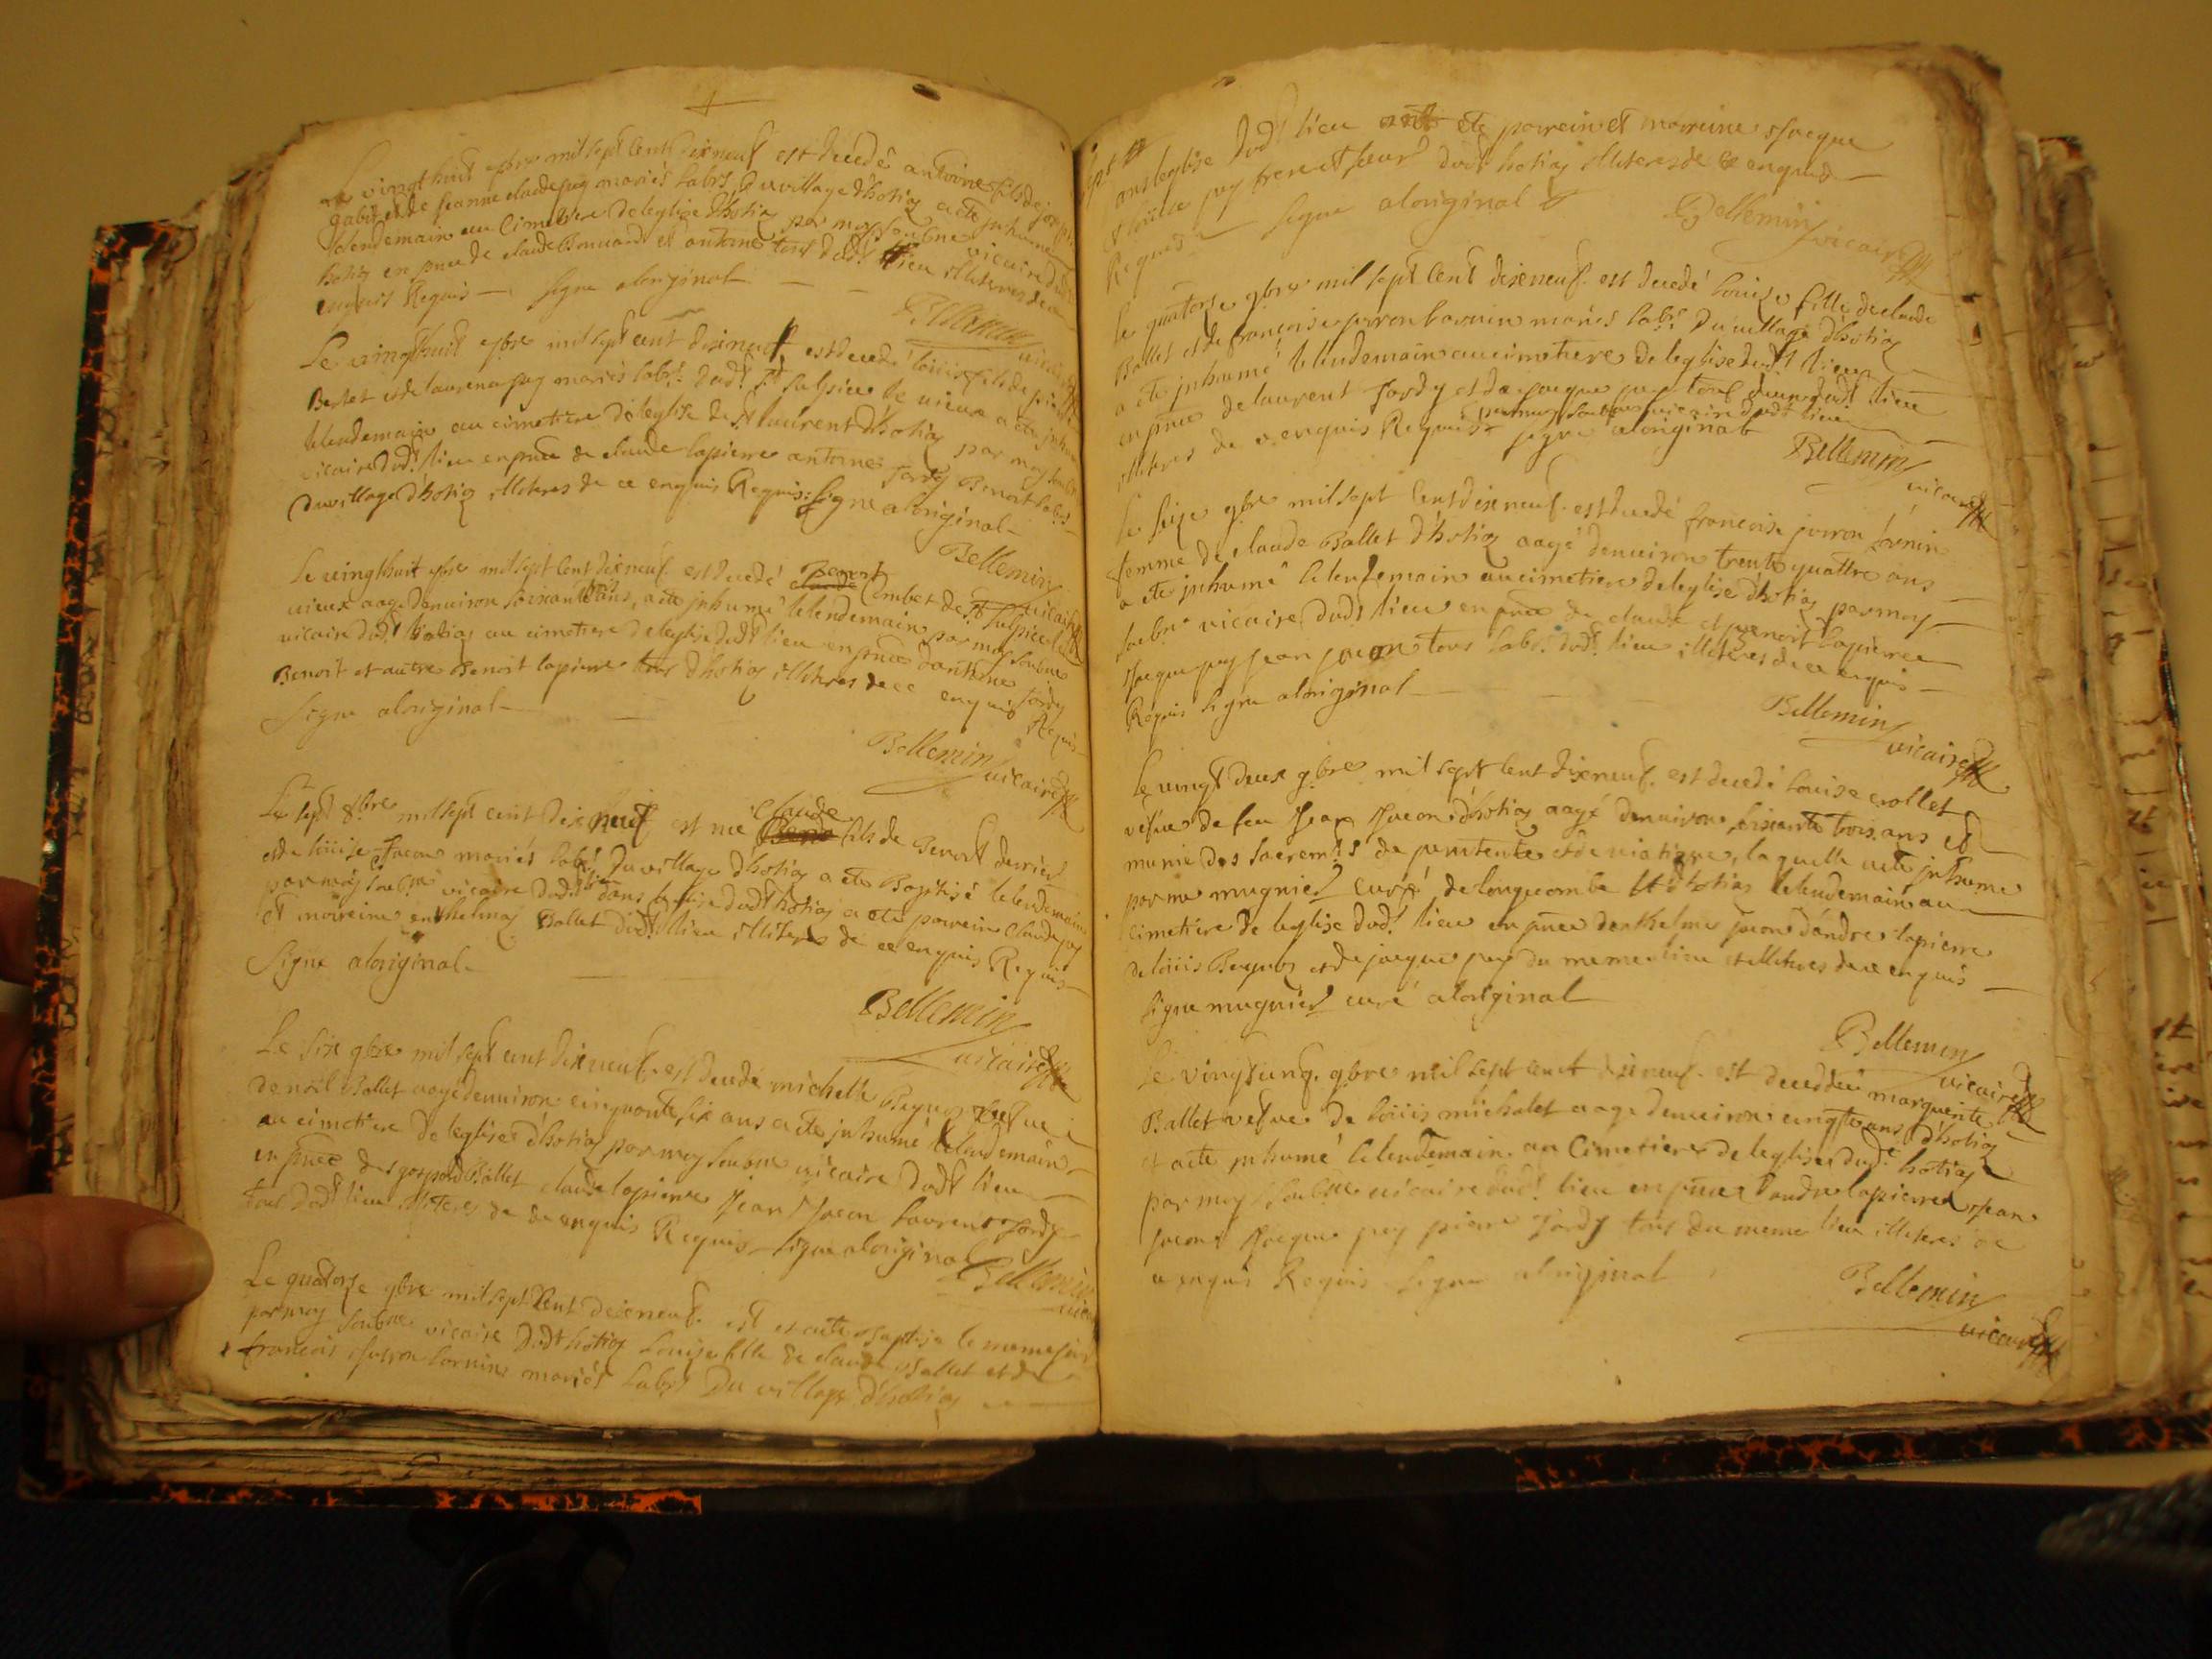 Le vingt huit 7bre mil sept cent dixneuf est decedé antoine fils de joseph
gabit et de jeanne claude puy mariés labrs du village d'hotiaz a ete jnhumé
lelendemain au cimetiere de leglise d'hotiaz par moy soubne vicaire dudt
hotiaz en pnce de claude Bonnard et antoine tous dudt lieu illiteres de ce
enquis Requis signe aloriginal
Bellemin vicaire
Le vingthuit 7bre mil sept cent dixneuf est decedé loüis fils de pierre
Bertet et de laurena puy mariés labrs dudt St sulpice le vieux a ete jnhumé
lelendemain au cimetiere de leglise de St laurent d'hotiaz par moy soubne
vicaire dudt lieu en pnce de claude lapierre antoine jordy Benoit labrs
du village d'hotiaz illiteres de ce enquis Requis signe aloriginal
Bellemin vicaire
Le vingthuit 7bre mil sept cent dixneuf est decedé claude Benoit Combet de St sulpice le
vieux aagé denviron soixante ans, a ete jnhumé lelendemain par moy soubne
vicaire dudt hotiaz au cimetiere de leglise dudt lieu en pnce dantoine jordy
Benoit et autre Benoit lapierre tous d'hotiaz illiteres de ce enquis Requis
signe aloriginal
Bellemin vicaire
Le sept 8bre mil sept cent dixneuf est né claude fils de Benoit
et de loüise jacon mariés labrs du village d'hotiaz a ete Baptisé lelendemain
par moy soubne vicaire dudt lieu dans leglise dudt hotiaz a ete parrein claude puy
et mareine enthelmaz Ballet dudt lieu illiteres de ce enquis Requis
signe aloriginal
Bellemin vicaire
Le six 9bre mil sept cent dixneuf est decedé michelle vefue
de noël Ballet aagé denviron cinquante six ans a ete jnhumé lelendemain
au cimetiere de leglise d'hotiaz par moy soubne vicaire dudt lieu
en pnce de gaspard Ballet claude lapierre jean jacon laurent jordy
tous dudt lieu illiteres de ce enquis Requis signe aloriginal
Bellemin vicaire
Le quatorse 9bre mil sept cent dixneuf est et a ete Baptisée le meme jour
par moy soubne vicaire dudt hotiaz Louise fille de claude Ballet et de
francoise mariés labrs Du village d'hotiaz
dans leglise dudt lieu ont ete parrein et mareine jacque
et loüise puy frere et seur dudt hotiaz illiteres de ce enquis
Requis signe aloriginal
Bellemin vicaire
Le quatorse 9bre mil sept cent dixneuf est decedé louise fille de claude
Ballet et de francoise mariés labrs du village d'hotiaz
a ete jnhumé lelendemain au cimetiere de leglise dudt lieu
par moy soubne vicaire dudt lieu
en pnce de laurent jordy et de jacque puy tous deux dudt lieu
illiteres de ce enquis Requis signe aloriginal
Bellemin vicaire
Le seize 9bre mil sept cent dixneuf est decedé francoise
femme de claude Ballet d'hotiaz aagé denviron trente quattre ans
a ete jnhumé lelendemain au cimetiere de leglise d'hotiaz par moy
soubne vicaire dudt lieu en pnce de claude et Benoit lapierre
jacque puy jean jacon tous labrs dudt lieu illiteres de ce enquis
Requis signe aloriginal
Bellemin vicaire
Le vingt deux 9bre mil sept cent dixneuf est decedé louise crollet
vefue de feu jean jacon d'hotiaz aagé denviron soixante trois ans et
munie des sacremts de penitente et de viatique, laquelle a ete jnhume
par me mugnier curé de longecombe et d'hotiaz lelendemain au
cimetiere de leglise dudt lieu en pnce denthelme jacon d'andre lapierre
de loüis et de jacque puy du meme lieu illiteres de ce enquis
signe mugnier curé aloriginal
Bellemin vicaire
Le vingt 9bre mil sept cent dixneuf est decedée marguerite
Ballet vefue de loüis michalet aagé denviron ans d'hotiaz
et a ete jnhumé lelendemain au cimetiere de leglise dudt hotiaz
par moy soubne vicaire dudt lieu en pnce d'andre lapierre jean
jacon jacque puy pierre jordy tous du meme lieu illiteres de
ce enquis Requis signe aloriginal
Bellemin
vicaire